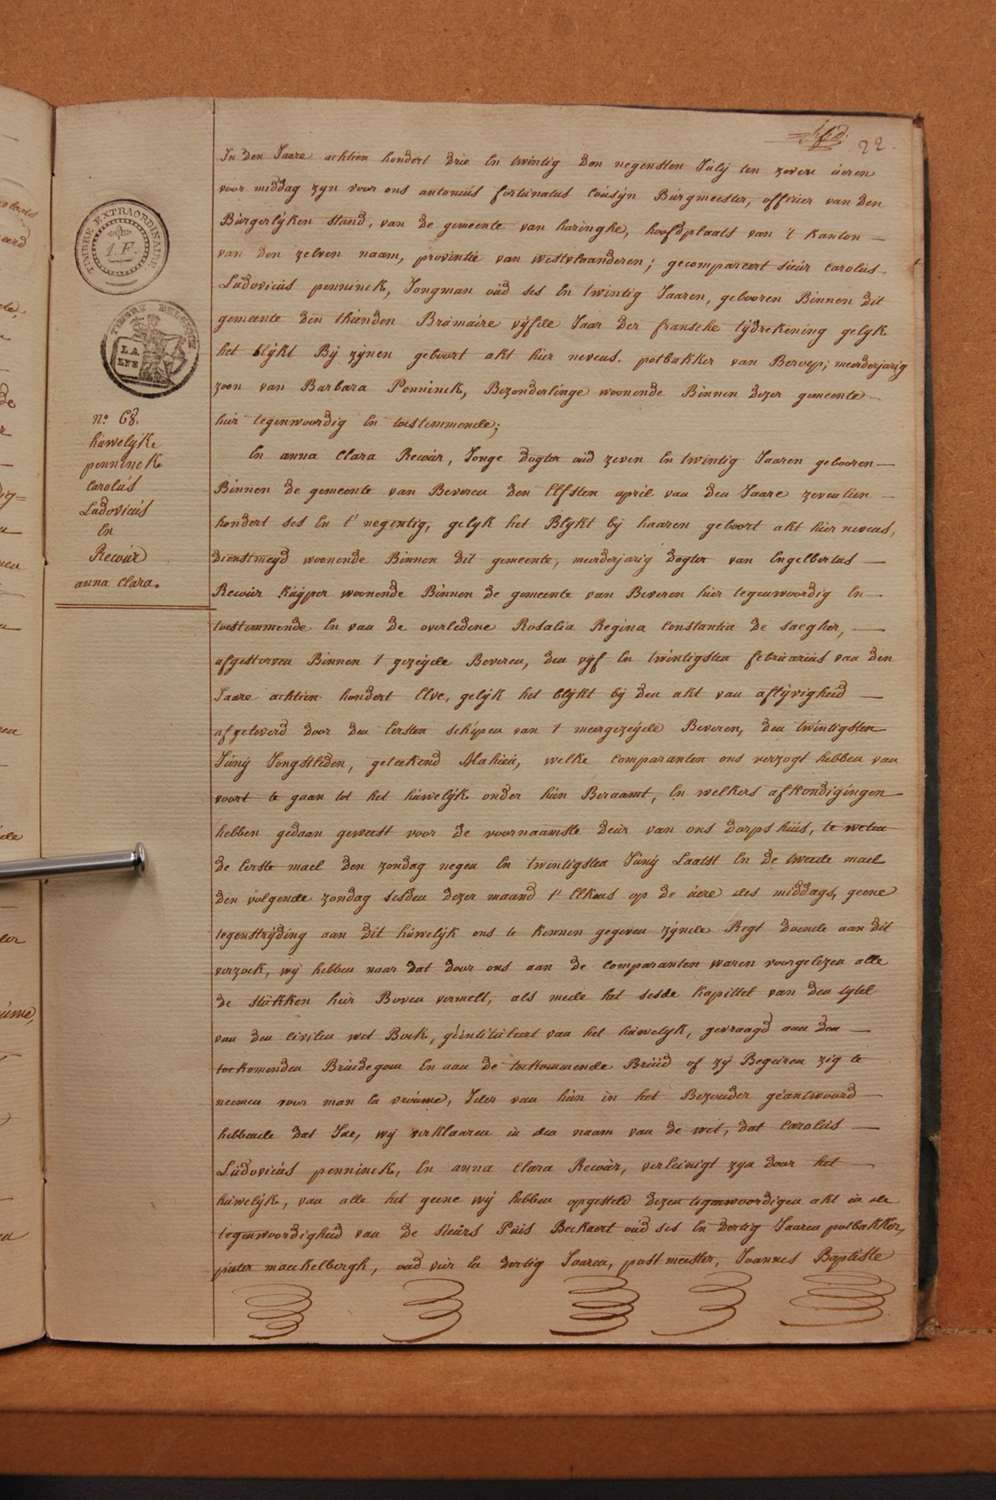 22
TIMBRE EXTRAORDINAIRE
1. F.
TIMBRE
n.º 68.
húwelijk
penninck
Carolús
Lúdovicús
En
Rewúr
anna Clara.
In den Jaare achtien hondert drie En twintig den negensten Julij ten zeven úeren
voor middag zijn voor ons antoniús fortúnatús Coúsijn Búrgmeester, officier van den
Búrgerlijken Stand, van de gemeente van haringhe, hoofdplaats van 't kanton
van den zelven naam, provintie van westvlaanderen; gecompareert Sieúr Carolús
Lúdoviciús penninck, Jongman oúd ses En twintig Jaaren, gebooren Binnen dit
gemeente den thienden Brúmaire vijfde Jaar der fransche tijdrekening gelijk
het Blijkt Bij zijnen geboort akt hier nevens. potbakker van Beroep; meerderjarig
zoon van Barbara Penninck, Bezonderlinge woonende Binnen dezer gemeente
hier tegenwoordig En toestemmende;
En anna Clara Rewúr, Jonge dogter oúd zeven En twintig Jaaren gebooren
Binnen de gemeente van Beveren den Elfsten april van den Jaare zeventien
hondert ses En t' negentig, gelijk het Blijkt bij haaren geboort akt hier nevens,
dienstmeijd woonende Binnen dit gemeente, meerderjarig dogter van Engelbertus
Rewúr kúijper woonende Binnen de gemeente van Beveren hier tegenwoordig En
toestemmende En van de overledene Rosalia Regina Constantia de Saegher,
afgestorven Binnen t gezeijde Beveren, den vijf En twintigsten febrúariús van den
Jaare achtien hondert Elve, gelijk het blijkt bij den akt van aflijvigheid
afgeleverd door den Eersten schepen van 't meergezeijde Beveren, den twintigsten
Júnij Jongstleden, geteekend Mahieú, welke comparanten ons verzogt hebben van
voort te gaan tot het húwelijk onder hún Beraamt, En welkers afkondigingen
hebben gedaan geweest voor de voornaamste deúr van ons dorps húis, te weten
de Eerste mael den zondag negen En twintigsten Júnij Laatst En de tweede mael
den volgende zondag sesden dezer maand t' Elkens op de úere des middags, geene
tegenstrijding aan dit húwelijk ons te kennen gegeven zijnde Regt doende aan dit
verzoek, wij hebben naar dat door ons aan de comparanten waren voorgelezen alle
de stúkken hier Boven vermelt, als mede het sesde kapittel van den tytel
van den civilen wet Boek, geintitúleert van het húwelijk, gevraagd aan den
toekomenden Brúidegom En aan de toekommende Brúid of zij Begeiren zig te
neemen voor man En vroúwe, Jder van hún in het Bezonder geantwoord
hebbende dat Jae, wij verklaaren in den naam van de wet, dat Carolús
Lúdoviciús penninck, En anna Clara Rewúr, vereinigt zyn door het
húwelijk, van alle het geene wij hebben opgesteld dezen tegenwoordigen akt in de
tegenwoordigheid van de Sieúrs Piús Beckaert oúd ses En dertig Jaaren potbakker,
pieter maeckelbergh, oúd vier En dertig Jaaren, postmeester, Joannes Baptiste